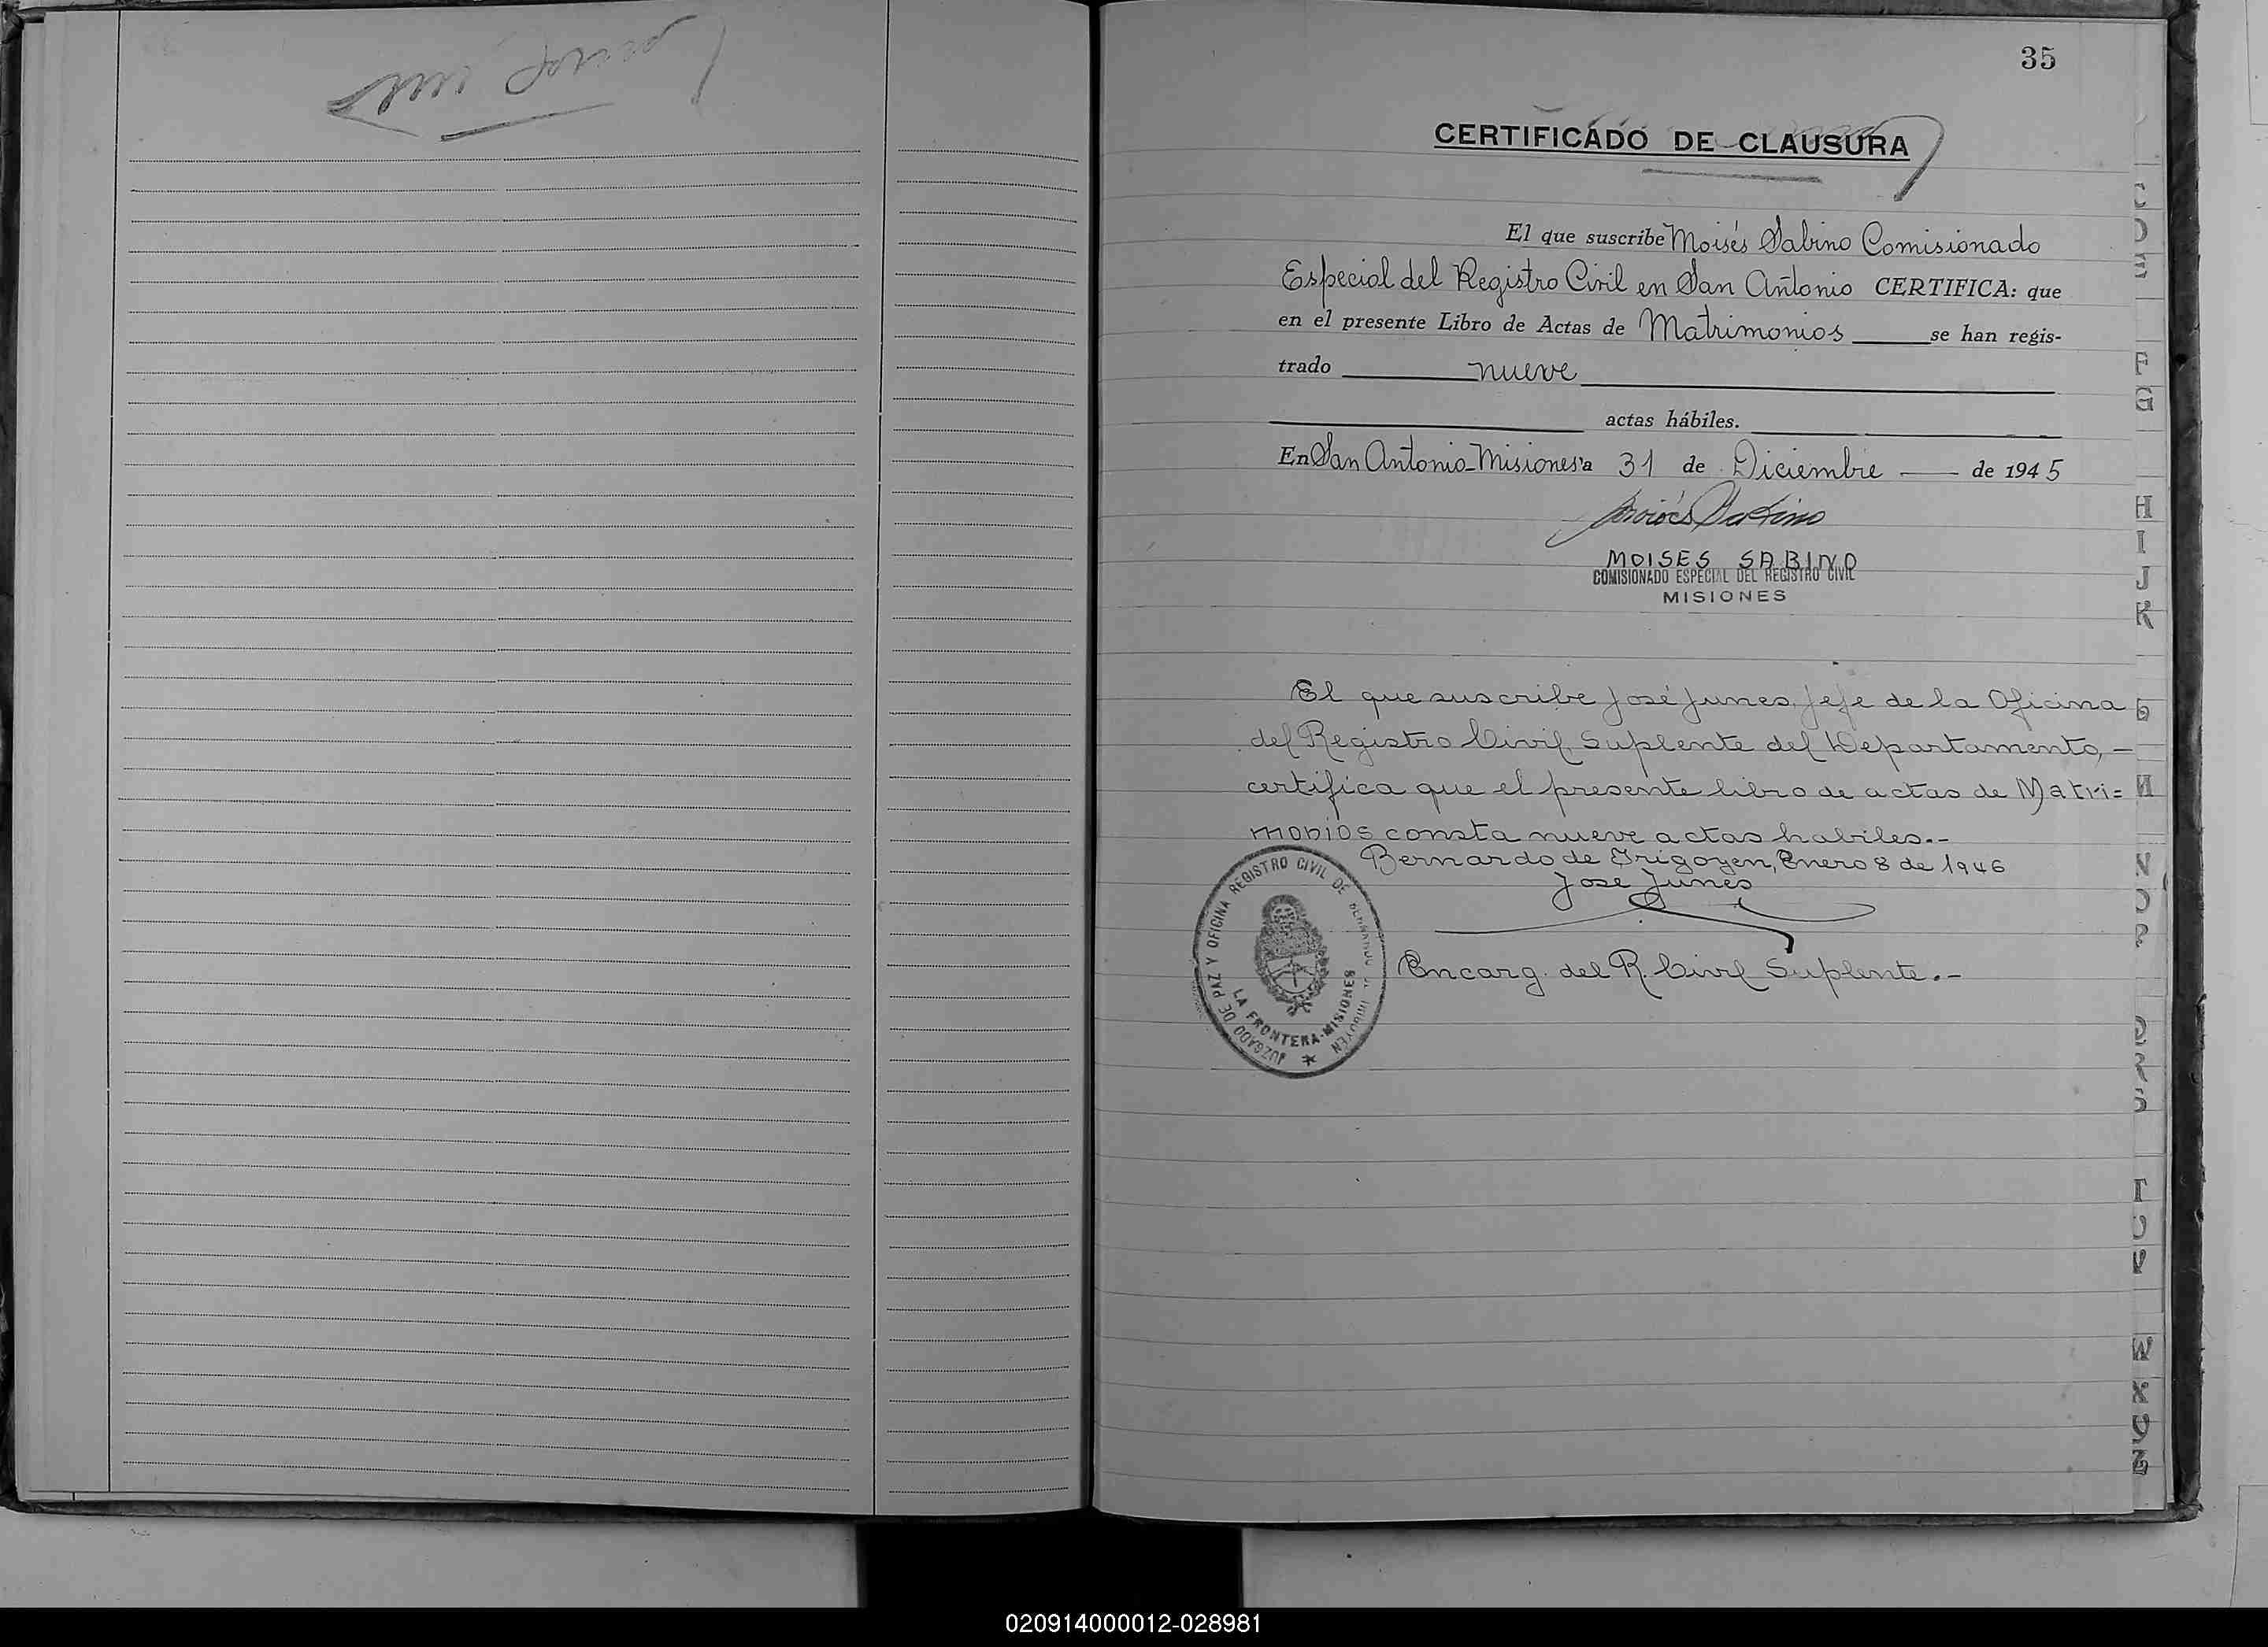 35
CERTIFICADO DE CLAUSURA
El que suscribe Moisés Sabino Comisionado
Especial del Registro Civil en San Antonio CERTIFICA: que
en el presente Libro de Actas de Matrimonios se han regis-
trado nueve
actas hábiles.
En San Antonio-Misiones a 31 de Diciembre de 1945
Moisés Sabino
MOISES SABINO
COMISIONADO ESPECIAL DEL REGISTRO CIVIL
MISIONES
El que suscribe José Junes, Jefe de la Oficina
del Registro Civil Suplente del Departamento, -
certifica que el presente libro de actas de Matri=
monios consta nueve actas habiles.-
Bernardo de Irigoyen, Enero 8 de 1946
Jose Junes
Encarg. del R. Civil Suplente.-
JUZGADO DE PAZ Y OFICINA REGISTRO CIVIL DE BERNARDO DE IRIGOYEN
LA FRONTERA-MISIONES
E
F
G
H
I
J
K
M
N
O
T
U
V
W
X
020914000012-028981